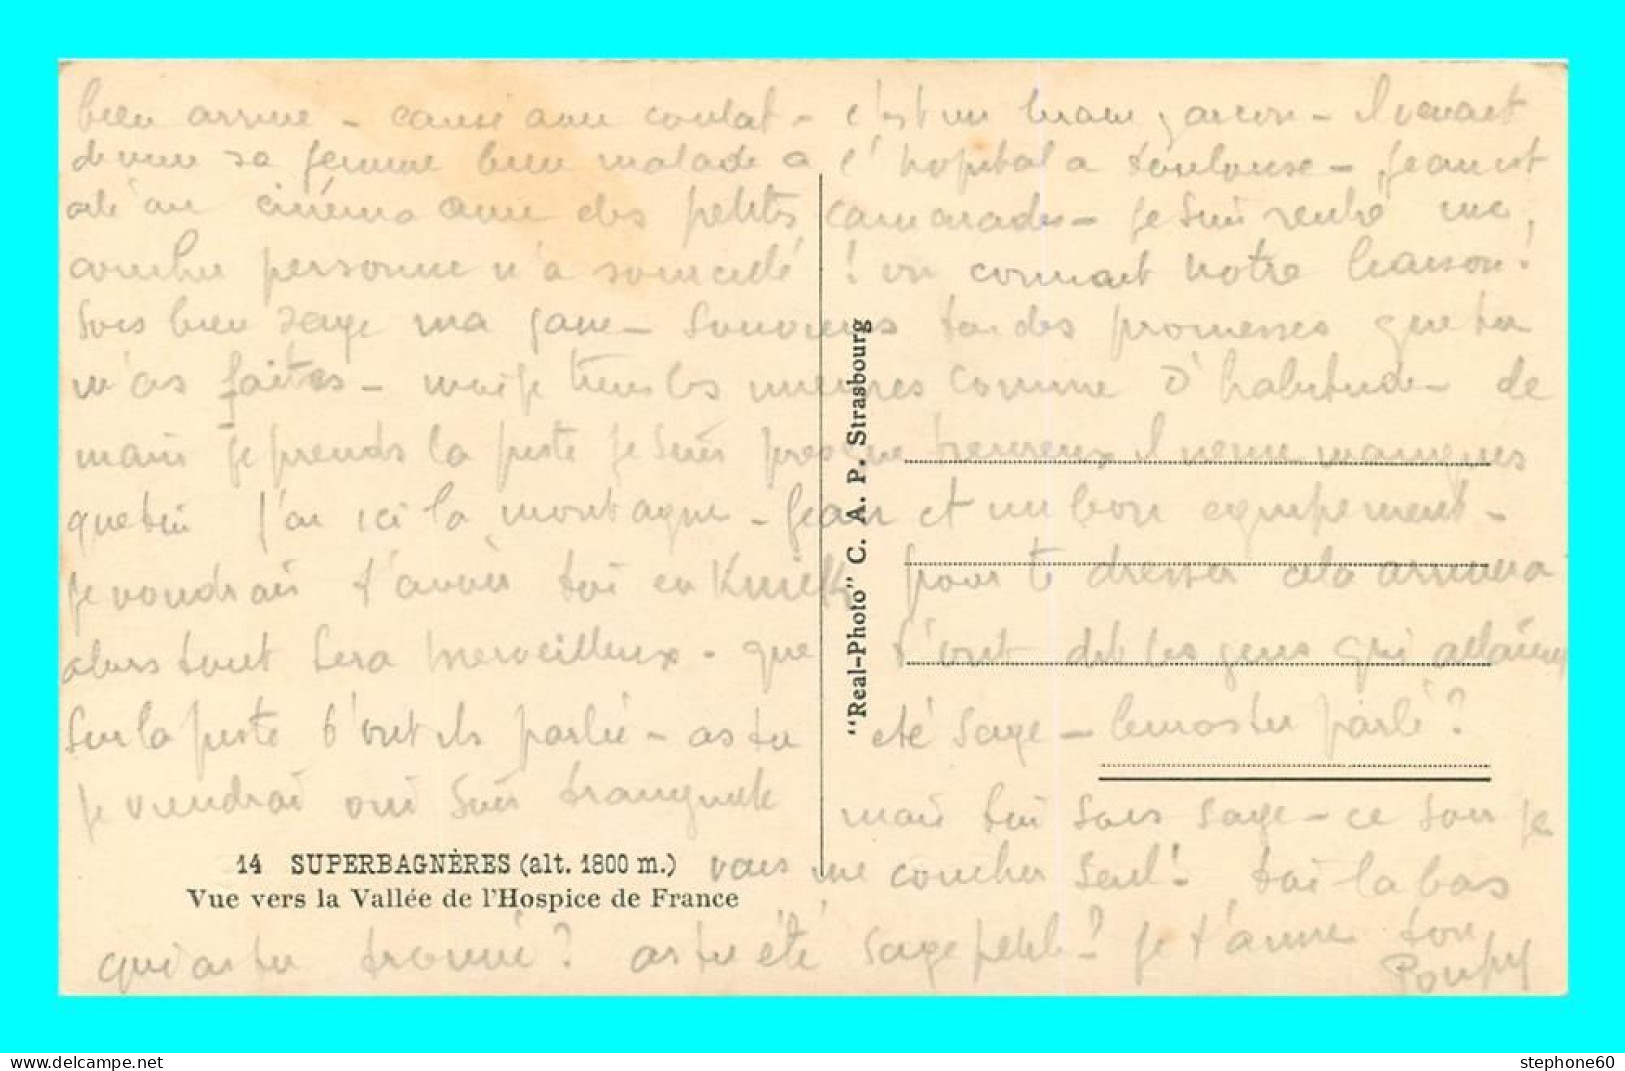 bien arrivé - cause avec contat - c'est un brave garcon - Il venait
de voir sa femme bien malade a l'hopital a toulouse - Jean est
allé au cinéma avec des petits camarades - je suis rentré me
coucher personne n'a soircidé ! on connait notre liaison !
Sois bien sage ma - Souviens toi des promesses que tu
m'as faites - moi je tiens les miennes comme d'habitude - de
main je prends la piste je suis presque heureux il me manques
que toi j'ai ici la montagne - Jean et un bon equipement -
je voudrais t'avoir toi en pour te dresser cela arrivera
alors tout sera merveilleux - que t'ont dit les gens qui allaient
sur la piste t'ont ils parlé - as tu eté sage - parlé ?
je viendrai oui suis tranquille mais toi sois sage - ce soir je
vais me coucher seul ! toi la bas
qui as tu trouvé ? as tu été sage petite ? je t'aime ton
14 SUPERBAGNÈRES (alt. 1800 m.)
Vue vers la Vallée de l'Hospice de France
"Real-Photo" C. A. P. Strasbourg
www.delcampe.net
stephone60